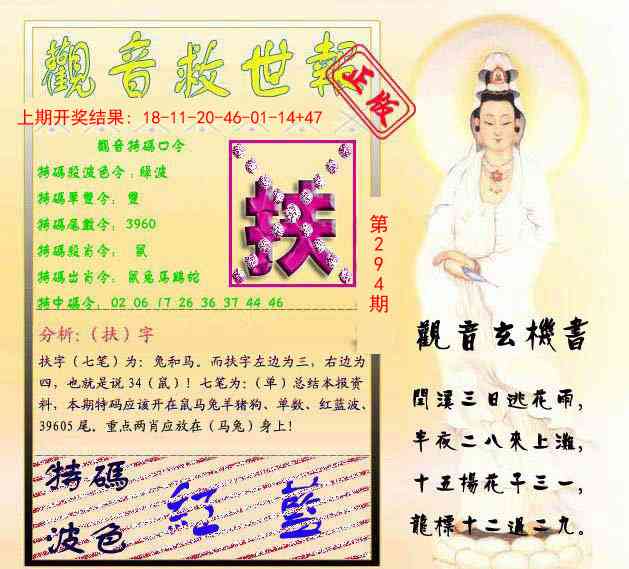 觀音救世報
正版
上期开奖结果：18-11-20-46-01-14+47
觀音特碼口令
特碼段波色令：綠波
特碼單雙令： 雙
特碼尾數令： 3960
特碼段肖令： 鼠
特碼出肖令： 鼠兔馬鷄蛇
特中碼令： 02 06 17 26 36 37 44 46
扶
第294期
分析:（扶）字
扶字（七笔）为：兔和马。而扶字左边为三，右边为
四，也就是说 34（鼠）！七笔为:（单）总结本报资
料，本期特码应该开在鼠马兔羊猪狗、单数、红蓝波、
39605 尾。重点两肖应放在（马兔）身上！
特碼
波色
紅 藍
觀音玄機書
三日桃花雨，
半夜二八來上灘，
十五楊花千三一，
龍標十二過二九。